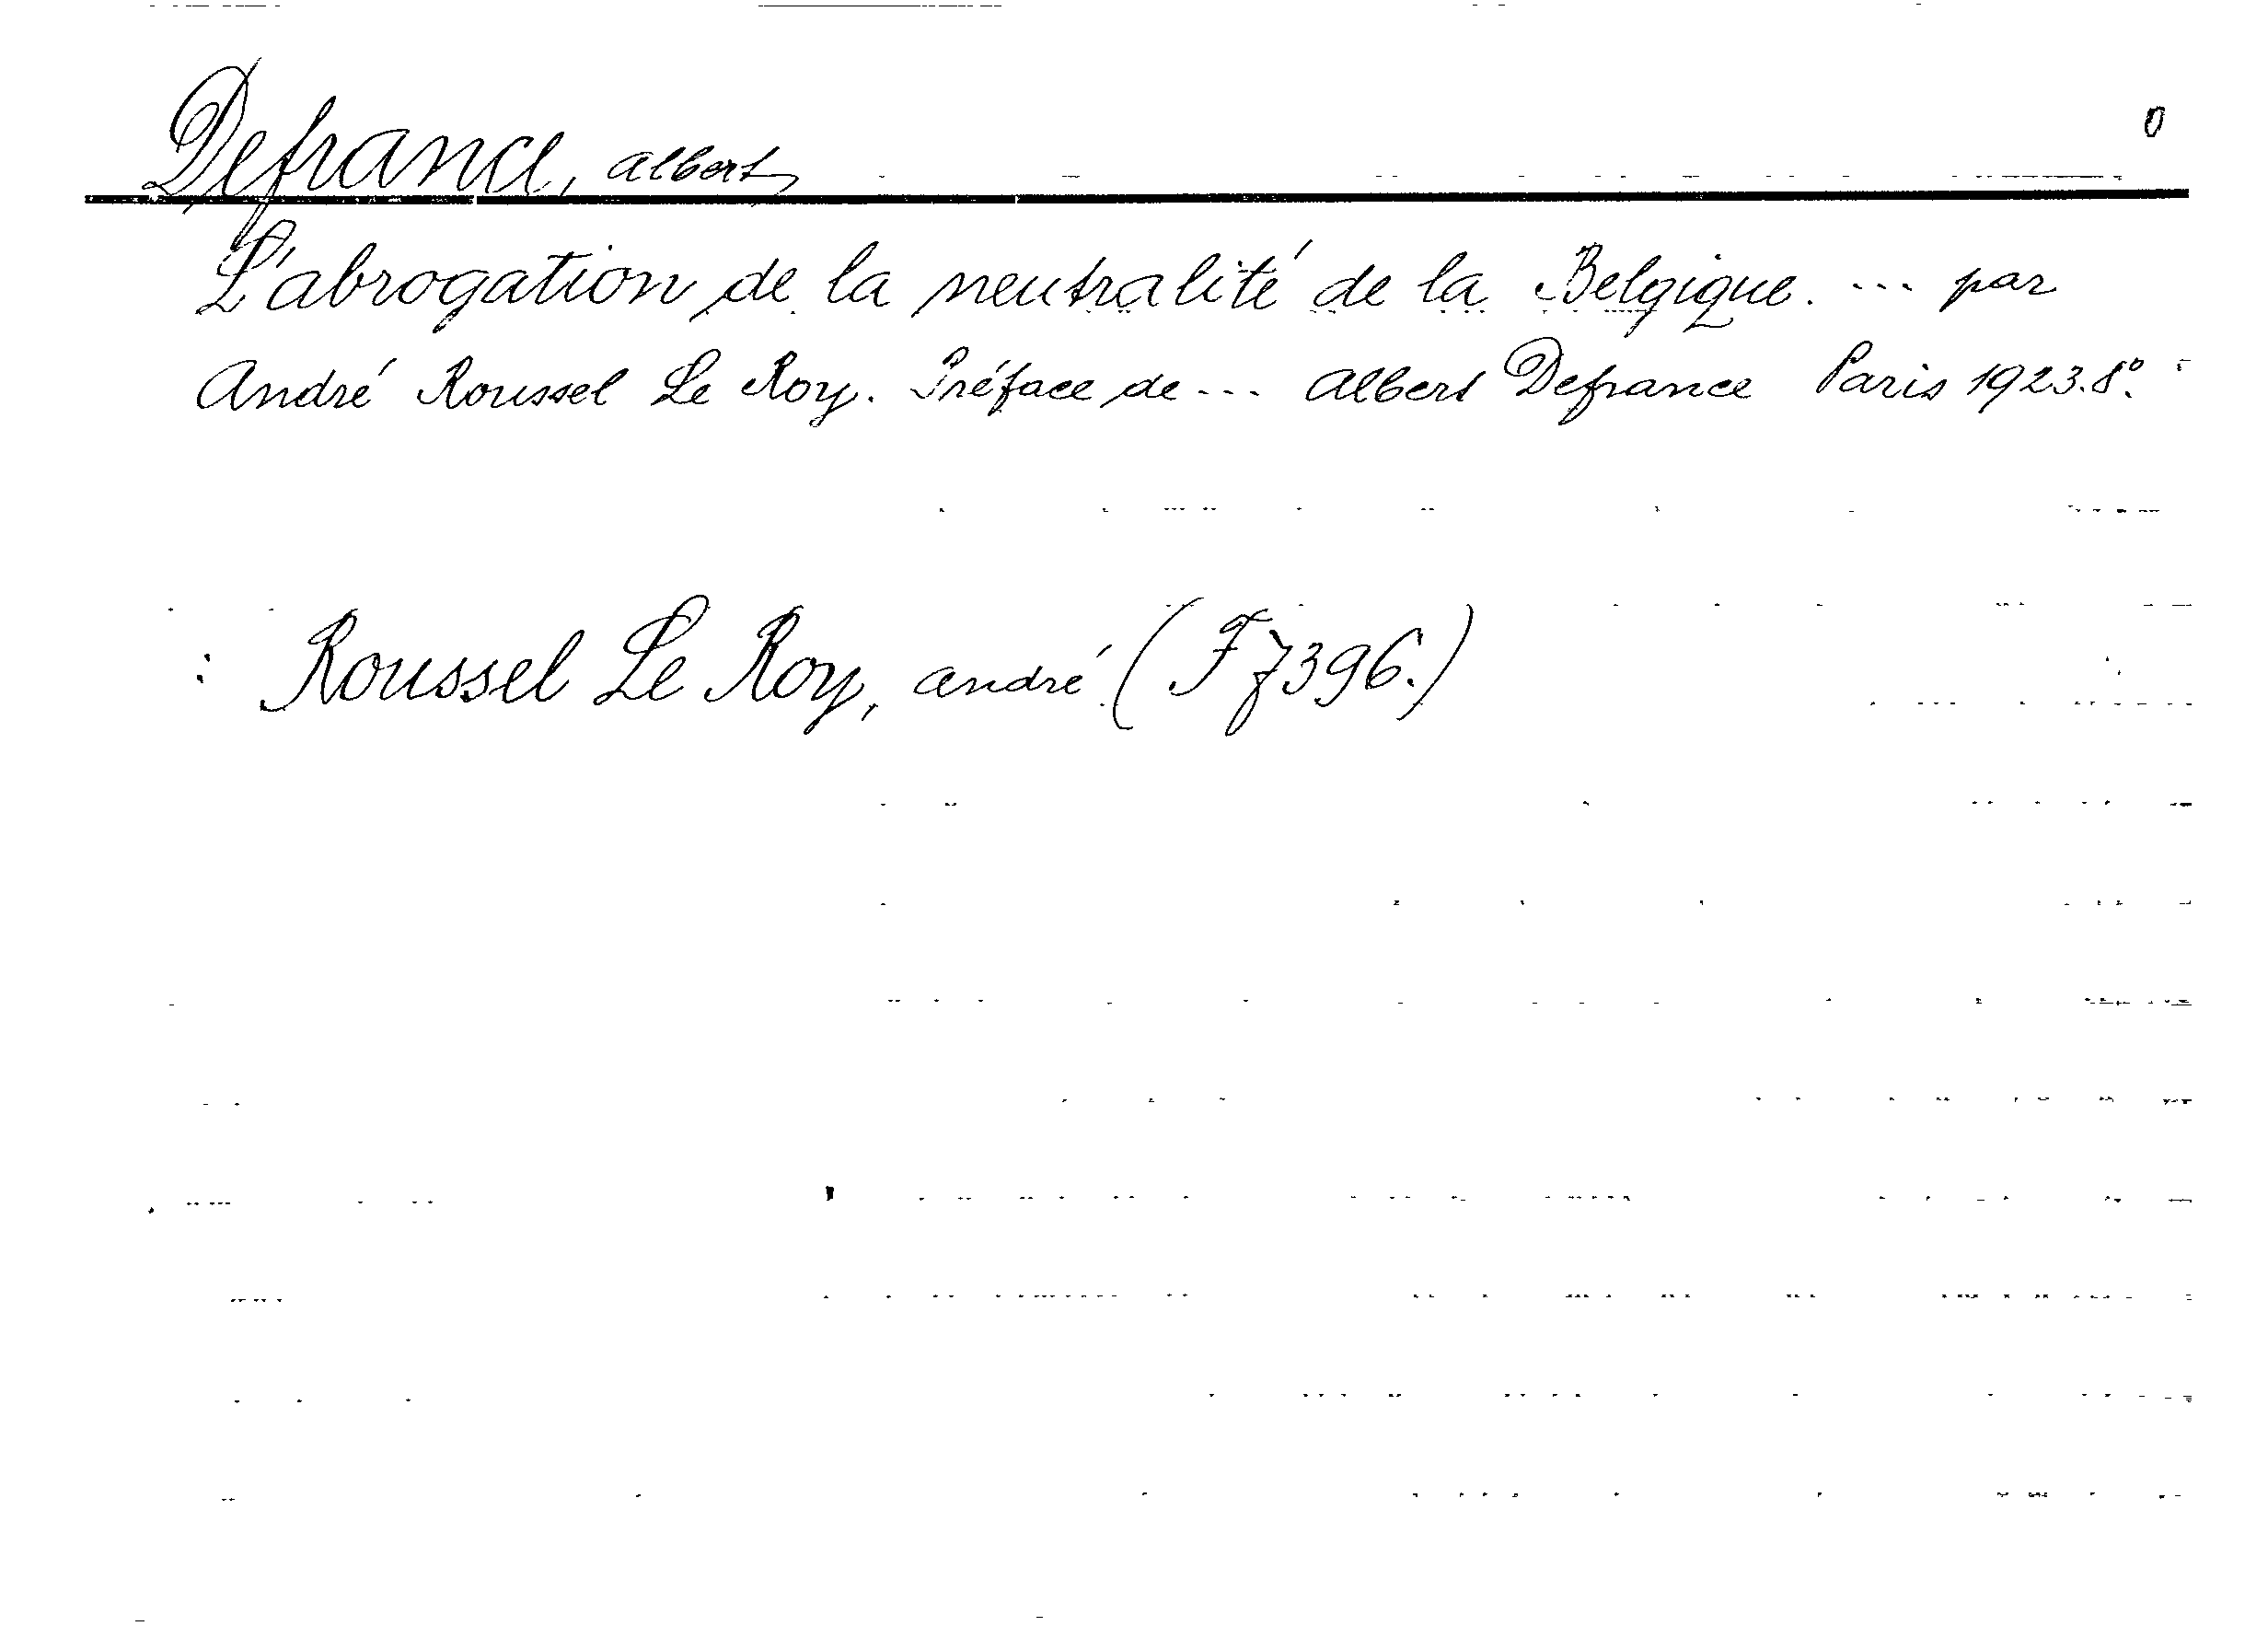 Defrance, Albert
0
L'abrogation de la neutralité de la Belgique. ... par
André Roussel Le Roy. Préface de ... Albert Defrance Paris 1923. 8°.
: Roussel Le Roy, André (F 7396.)